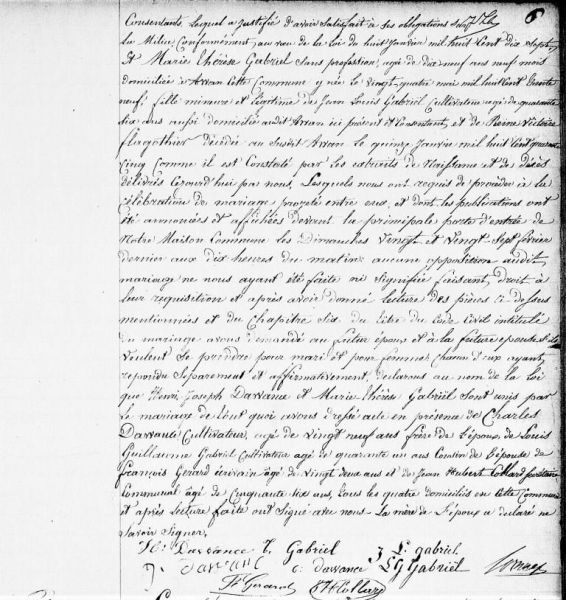 6
Consentante, lequel a justifié d'avoir satisfait à ses obligations dans
la Milice conformément au vœu de la loi du huit Janvier mil huit cent dix sept
Et Marie Thérèse Gabriel Sans profession agée de dix neuf ans neuf mois
domiciliée à Arran cette Commune y née le vingt-quatre mai mil huit cent trente
neuf, fille mineure et légitime de Jean Louis Gabriel Cultivateur agé de quarante
six ans aussi domicilié audit Arran ici présent et Consentant, et de Reine Victoire
décédée au susdit Arran le quinze Janvier mil huit cent quarante
cinq comme il est Constaté par les extraits de Naissance et de décès
délivrés cejourd'hui par nous. Lesquels nous ont requis de procéder à la
Célébration de mariage projeté entre eux, et dont les publications ont
été annoncées et affichées devant la principale porte d'entrée de
Notre Maison Commune les Dimanches Vingt et Vingt-Sept février
dernier aux dix heures du matin aucune opposition audit
mariage ne nous ayant été faite ni signifiée faisant droit à
leur requisition et après avoir donné lecture des pièces ci dessus
mentionnées et du Chapitre Six du titre du Code Civil intitulé
du mariage avons demandé au futur époux et à la future épouse s'ils
veulent se prendre pour mari et pour femme; chacun d'eux ayant,
répondu séparément et affirmativement déclarons au nom de la loi
que Henri Joseph Darvance et Marie Thérèse Gabriel sont unis par
le mariage de tout quoi avons dressé acte en présence de Charles
Darvance Cultivateur, agé de vingt neuf ans frère de l'époux, de Louis
Guillaume Gabriel Cultivateur agé de quarante un ans Cousin de l'épouse de
François Gérard écrivain agé de vingt deux ans et de Jean Hubert Collard
Communal agé de cinquante six ans, tous les quatre domiciliés en cette Commune
et après lecture faite ont signé avec nous. La mère de l'époux a déclaré ne
savoir signer.
H: Darvance T. Gabriel J L. gabriel
Darvance c: darvance L G Gabriel
F. Gerard JH Collard